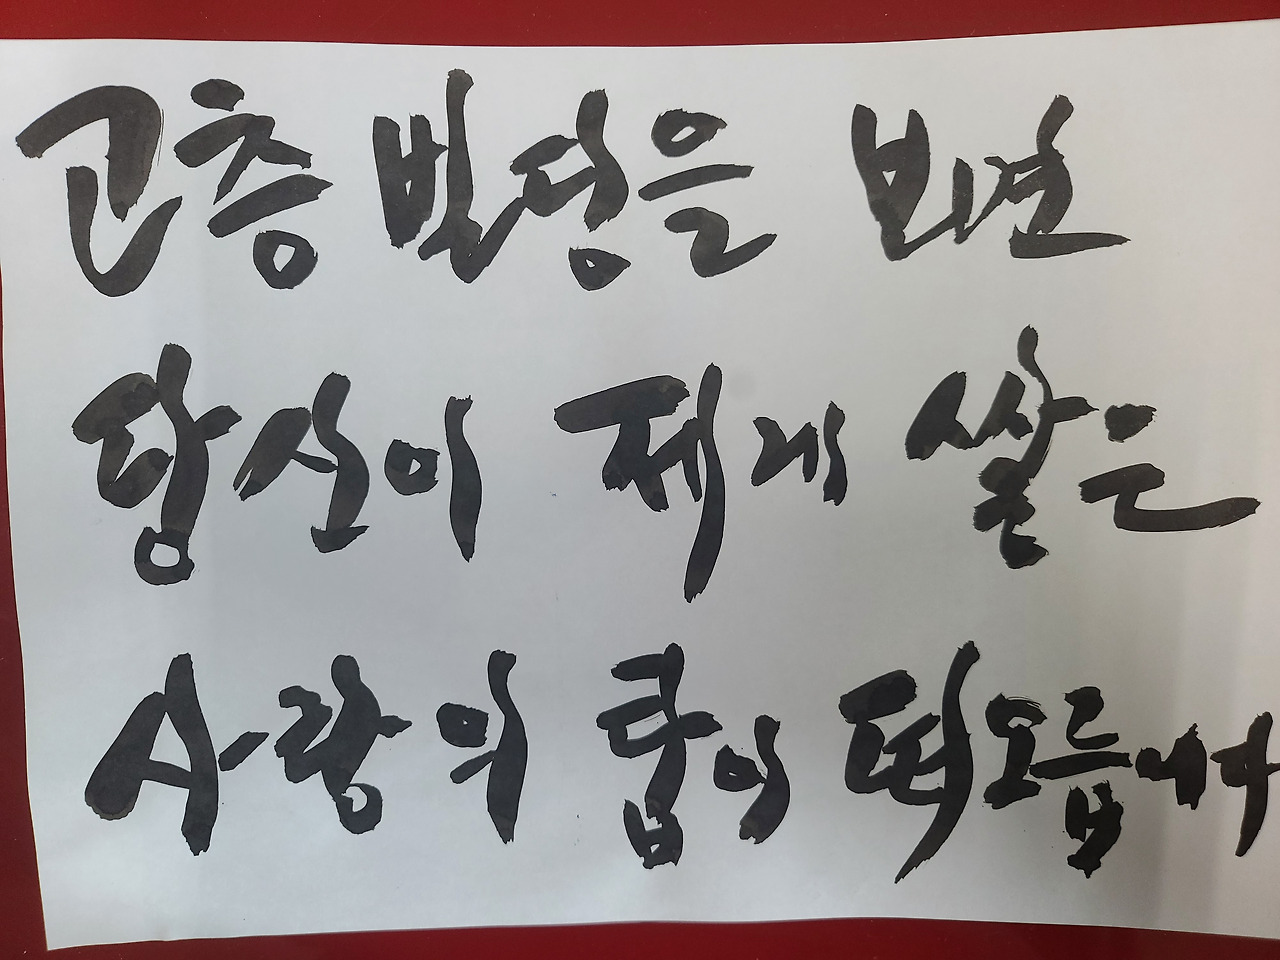 고층 빌딩을 보면
당신이 제게 쌓은
사랑의 탑이 떠오릅니다